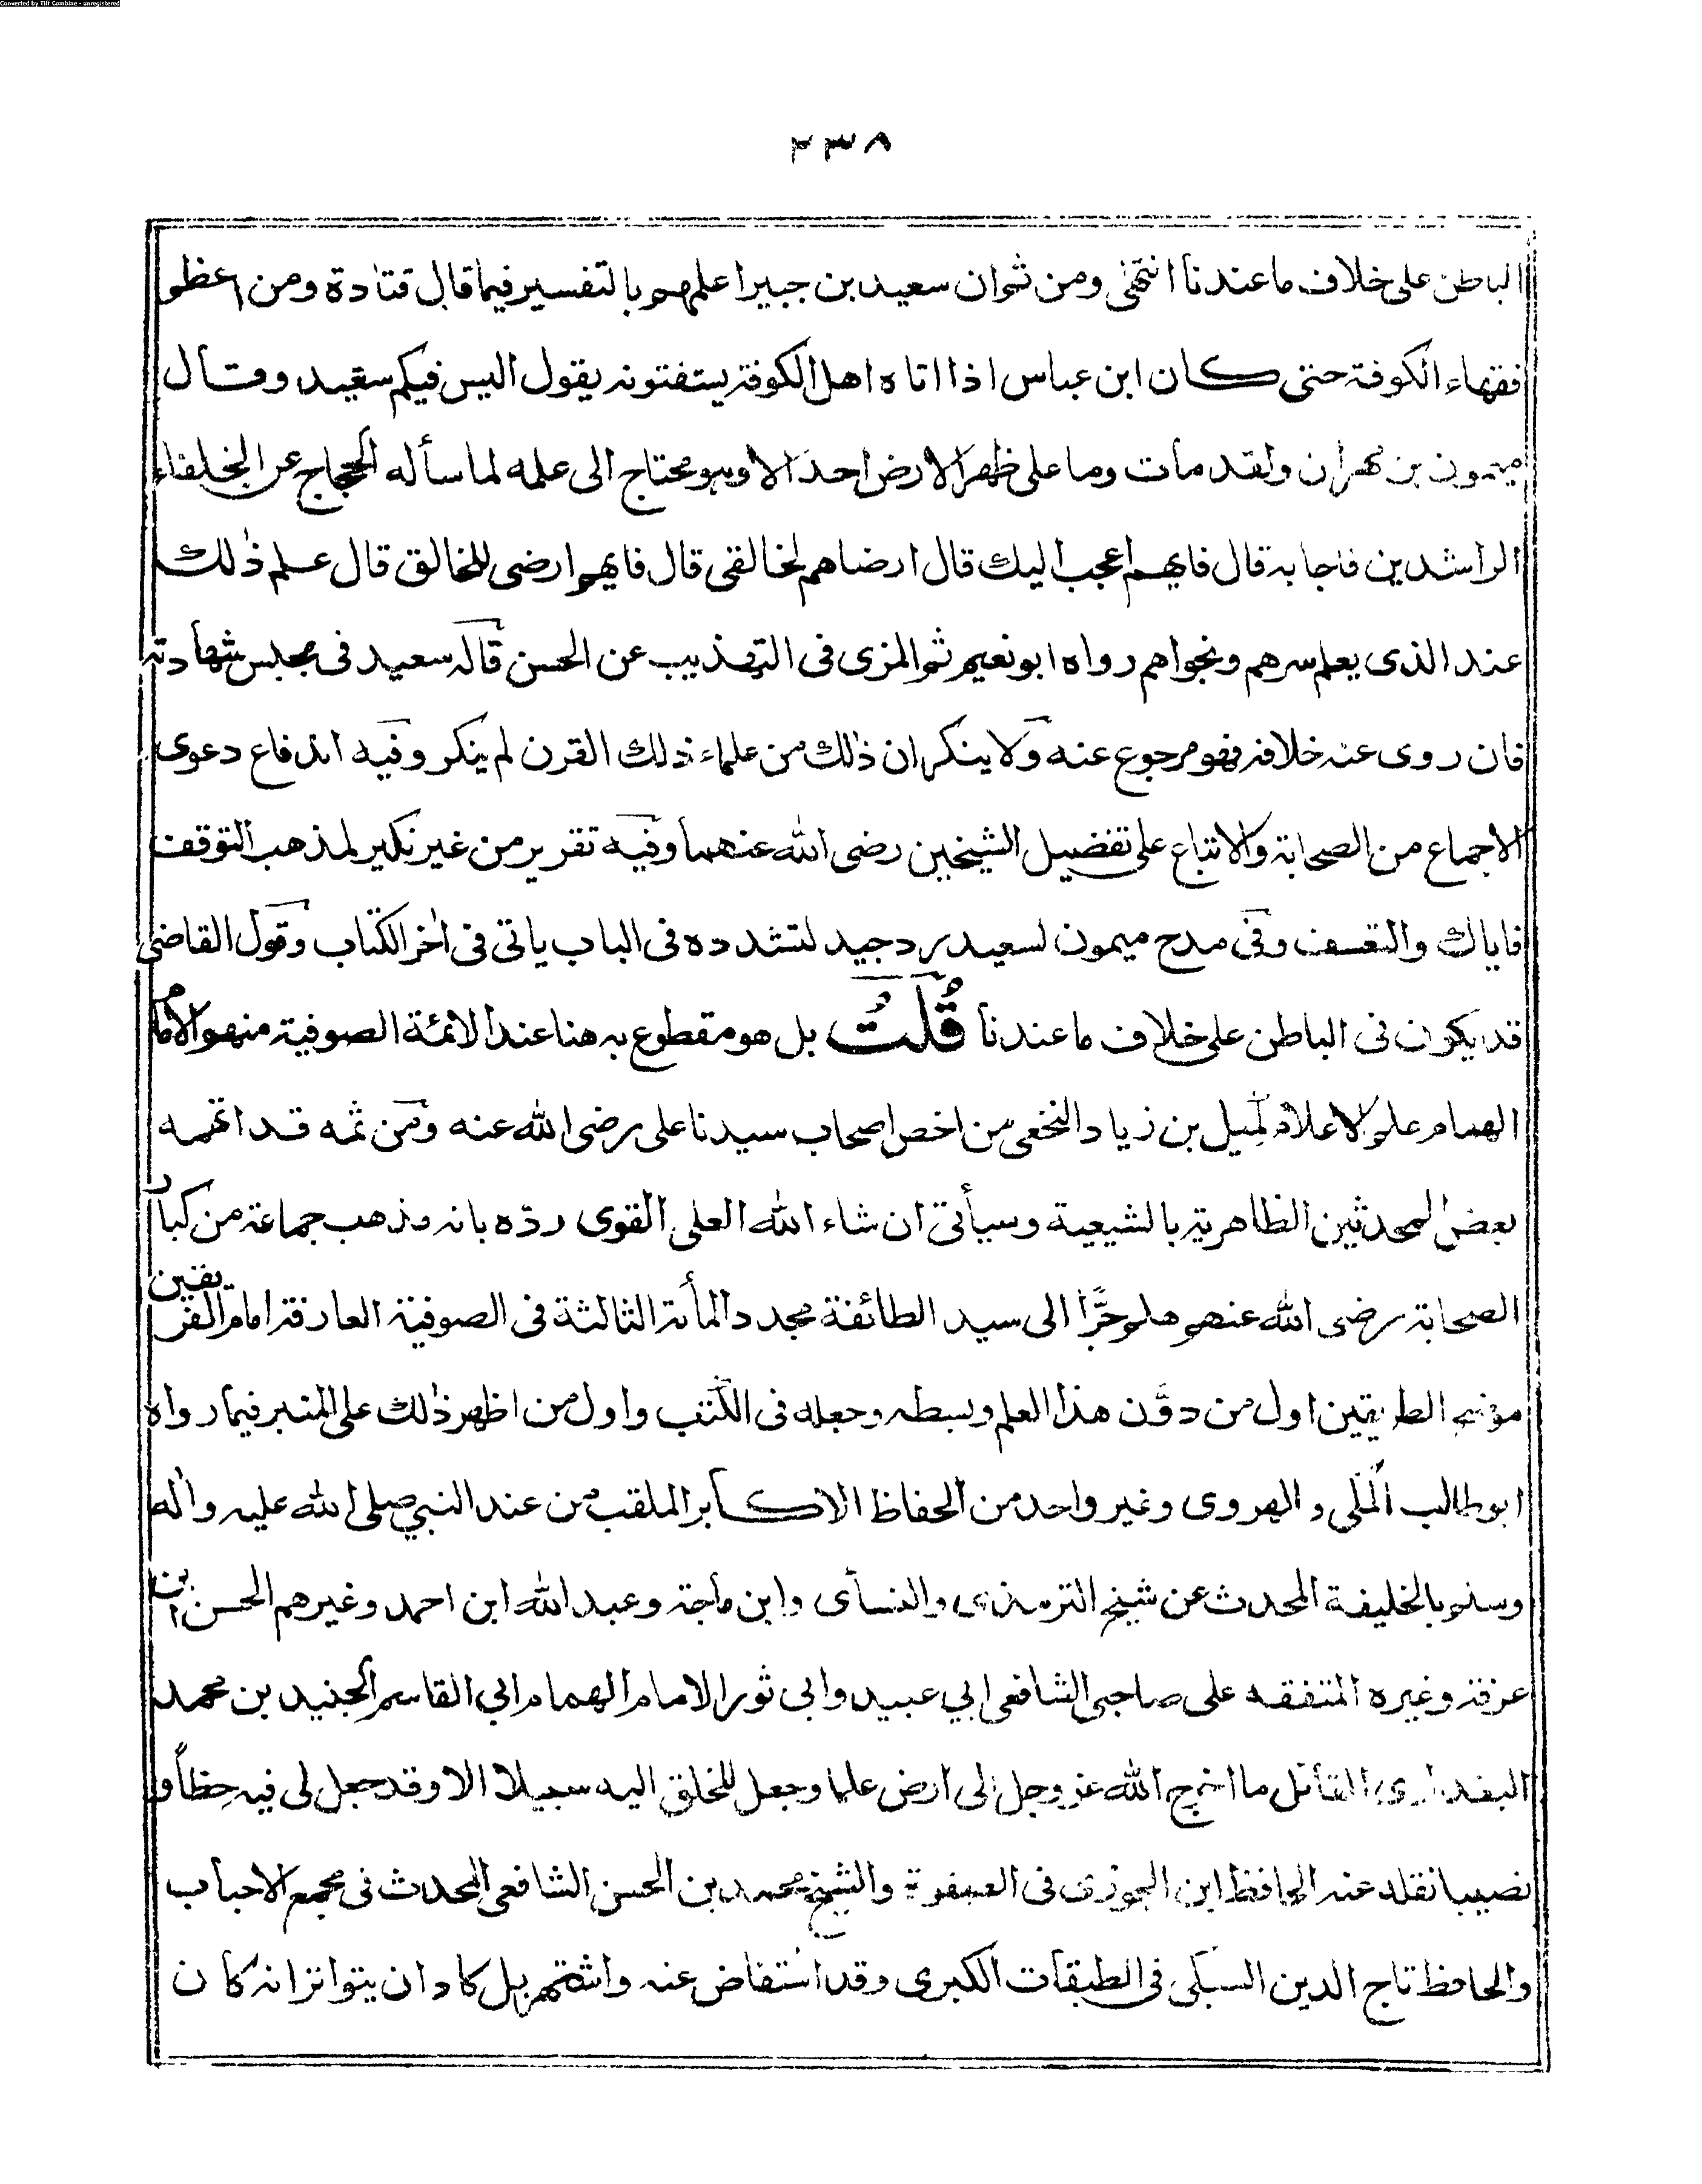 Converted by Tiff Combine - unregistered
٢٣٨
الباطن على خلاف ما عندنا انتهٰى ومن ثم ان سعيد بن جبير اعلمهم بالتفسير فيما قال قتادة ومن اعظم
فقهاء الكوفة حتى كان ابن عباس اذا اتاه اهل الكوفة يستفتونه يقول اليس فيكم سعيد وقال
ميمون بن مهران ولقد مات وما على ظهر الارض احد الا وهو محتاج الى علمه لما سأله الحجاج عن الخلفاء
الراشدين فاجابه قال فايهم اعجب اليك قال ارضاهم لخالقى قال فايهم ارضى للخالق قال علم ذٰلك
عند الذى يعلم سرهم ونجواهم رواه ابو نعيم ثم المزى فى التهذيب عن الحسن قاله سعيد فى مجلس شهادته
فان روى عنه خلافه فهو مرجوع عنه ولا ينكر ان ذٰلك من علماء ذلك القرن لم ينكر وفيه اندفاع دعوى
الاجماع من الصحابة والاتباع على تفضيل الشيخين رضى الله عنهما وفيه تقرير من غير نكير لمذهب التوقف
فاياك والتعسف وفى مدح ميمون لسعيد رد جيد لتشدده فى الباب ياتى فى اٰخر الكتاب وقول القاضى
قد يكون فى الباطن على خلاف ما عندنا قُلتُ بل هو مقطوع به هنا عند الائمة الصوفية منهم الامام
الهمام علم الاعلام كميل بن زياد النخعى من اخص اصحاب سيدنا على رضى الله عنه ومن ثمه قد اتهمه
بعض المحدثين الظاهرية بالشيعية وسيأتى ان شاء الله العلى القوى ردّه بانه مذهب جماعة من كبار
الصحابة رضى الله عنهم هلم جرًّا الى سيد الطائفة مجدد المأة الثالثة فى الصوفية العارفة امام الفريقين
الطريقين اول من دوّن هذا العلم وبسطه وجعله فى الكتب واول من اظهر ذٰلك على المنبر فيما رواه
ابو طالب المكى و الهروى وغير واحد من الحفاظ الاكابر الملقب من عند النبي صلى الله عليه واٰله
وسلم بالخليفة المحدث عن شيخ الترمذى والنسأى وابن ماجة وعبد الله ابن احمد وغيرهم الحسن بن
عرفة وغيره المتفقه على صاحبى الشافعى ابي عبيد وابى ثور الامام الهمام ابي القاسم الجنيد بن محمد
البغدادى القائل ما اخرج الله عز وجل الى ارض علما وجعل للخلق اليه سبيلا الا وقد جعل لى فيه حظاً و
نصيبا نقله عنه الحافظ ابن الجوزى فى الصفوة والشيخ محمد بن الحسن الشافعى المحدث فى مجمع الاحباب
والحافظ تاج الدين السبكى فى الطبقات الكبرى وقد استفاض عنه واشتهر بل كاد ان يتواتر انه كان